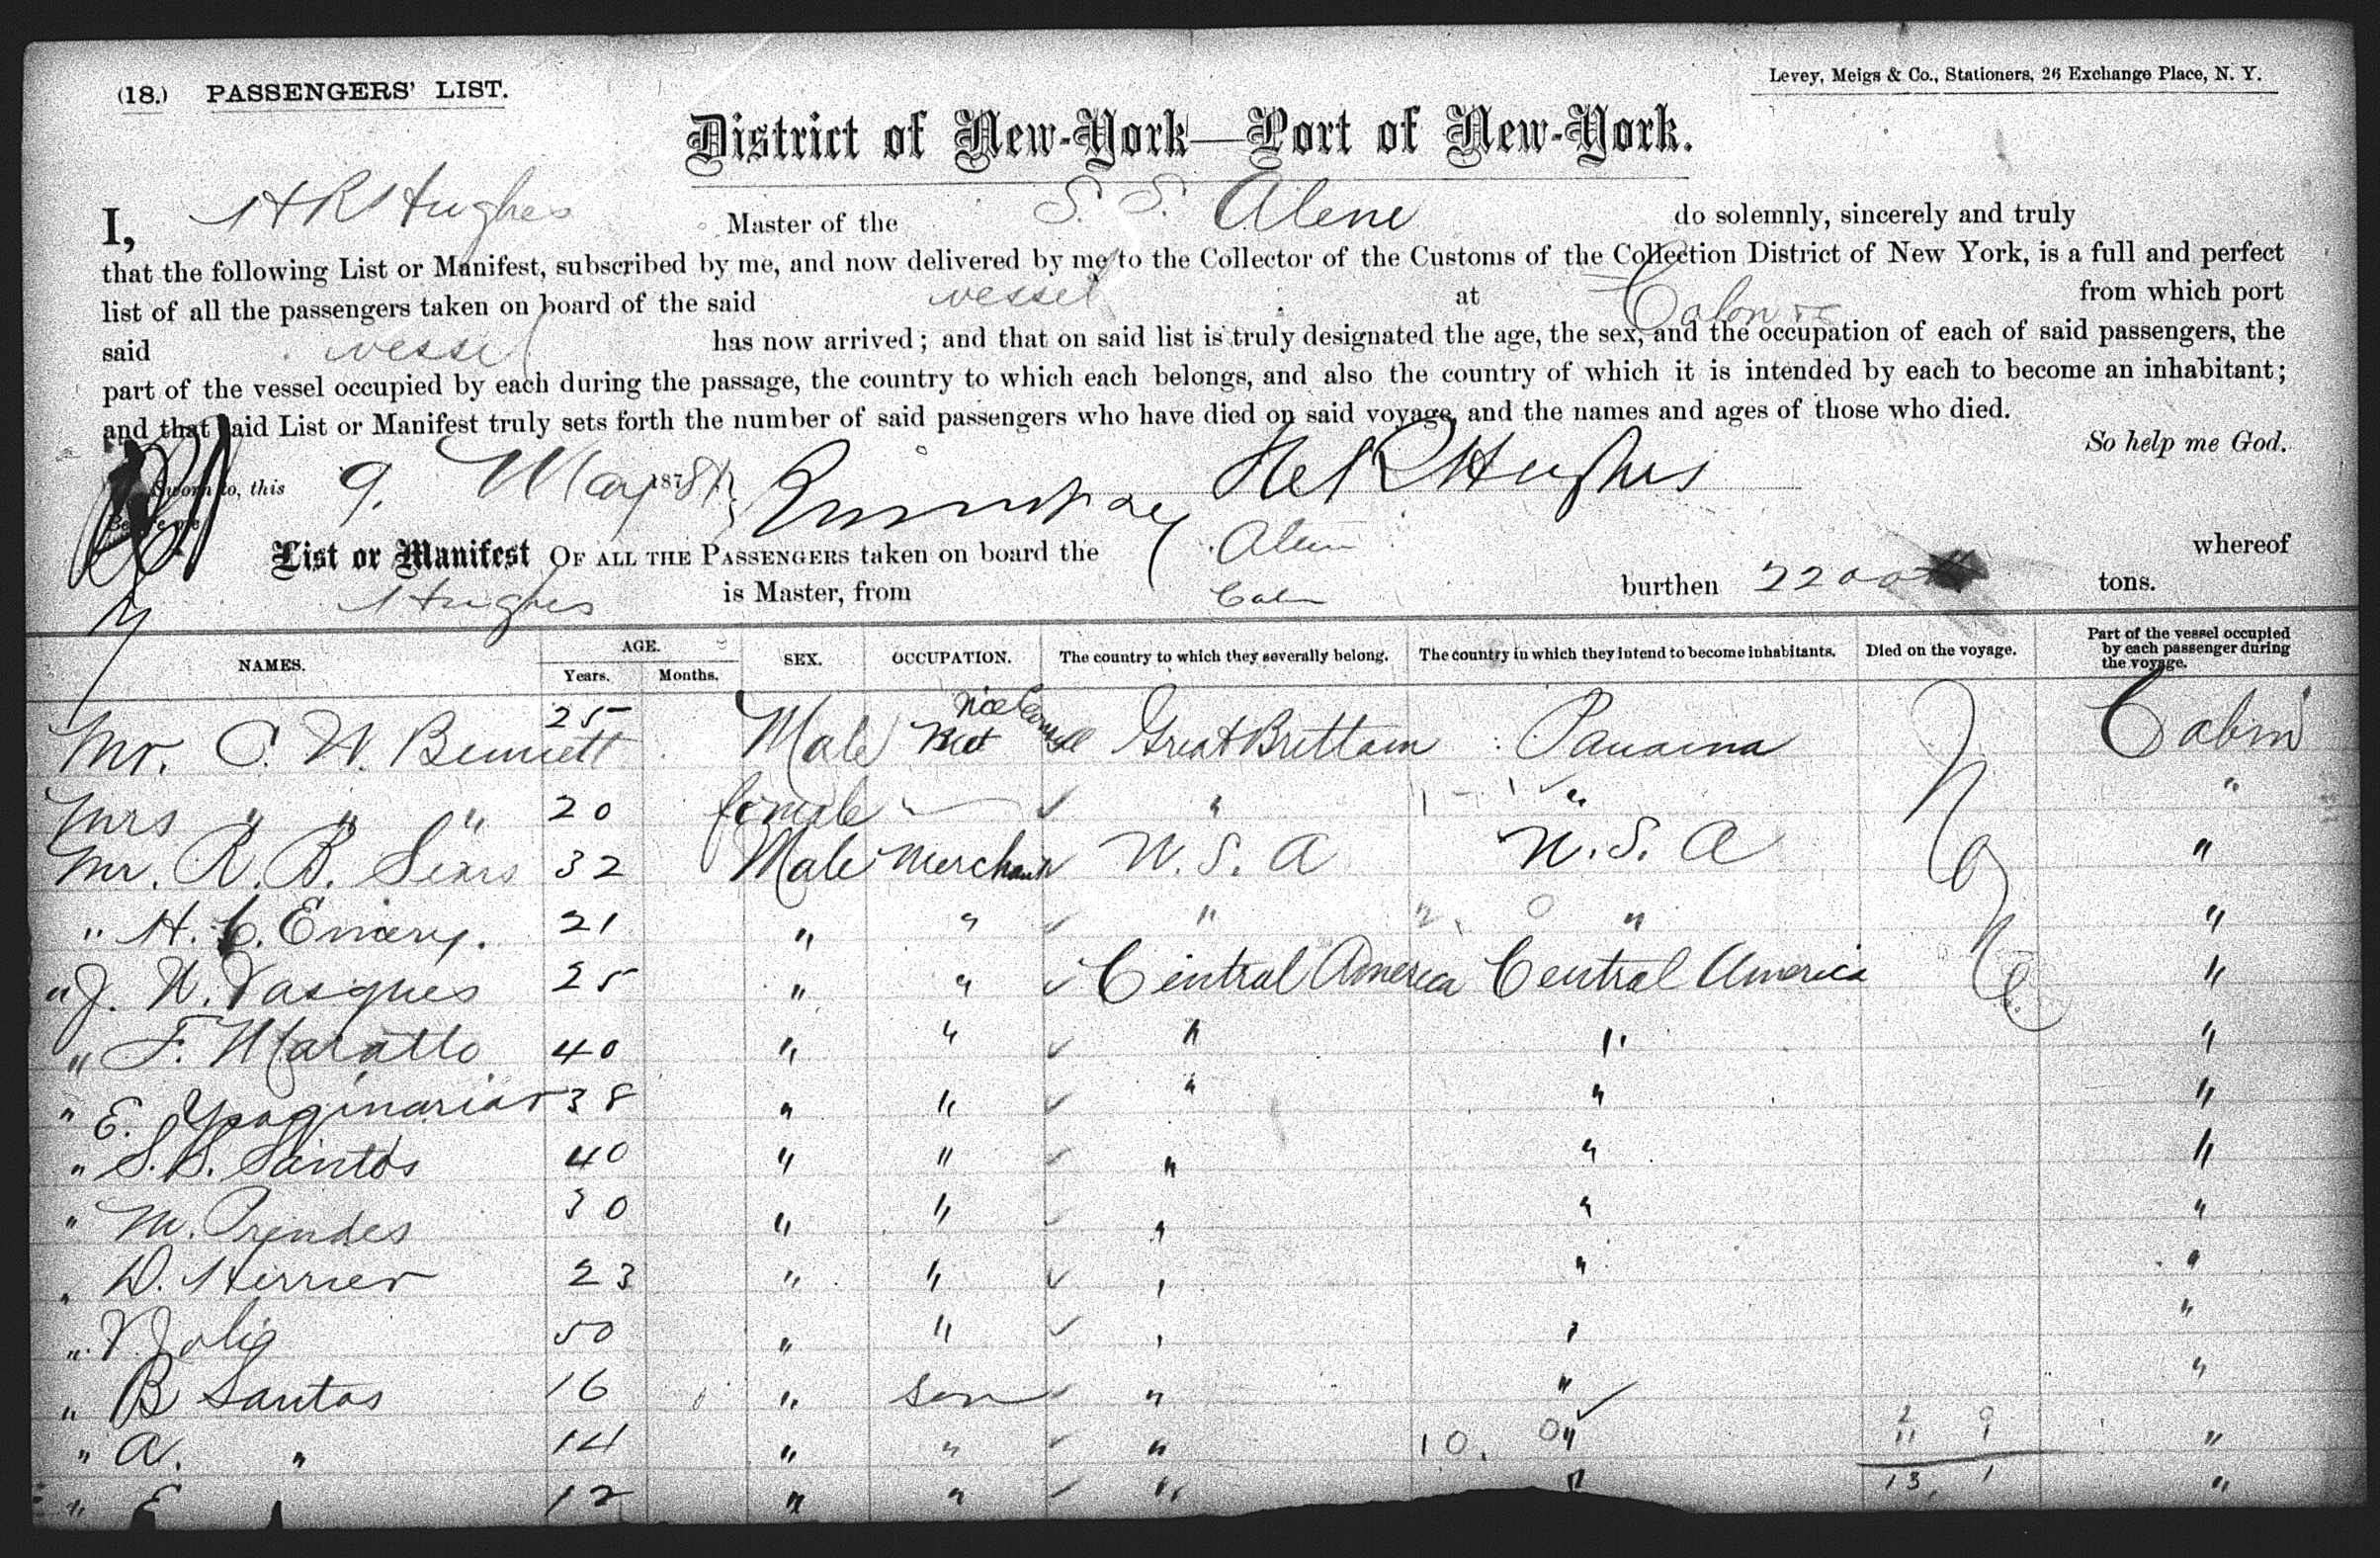 (18.) PASSENGERS' LIST.
Levey, Meigs & Co., Stationers, 26 Exchange Place, N. Y.
District of New-York—Port of New-York.
I, H R Hughes Master of the S. S. Alene do solemnly, sincerely and truly
that the following List or Manifest, subscribed by me, and now delivered by me to the Collector of the Customs of the Collection District of New York, is a full and perfect
list of all the passengers taken on board of the said vessel at Colon from which port
said vessel has now arrived; and that on said list is truly designated the age, the sex, and the occupation of each of said passengers, the
part of the vessel occupied by each during the passage, the country to which each belongs, and also the country of which it is intended by each to become an inhabitant;
and that said List or Manifest truly sets forth the number of said passengers who have died on said voyage, and the names and ages of those who died.
So help me God.
Sworn to, this 9. May 1878 81 H R Hughes
Before me
List or Manifest OF ALL THE PASSENGERS taken on board the Alene whereof
Hughes is Master, from Colon burthen 2200 tons.
NAMES. AGE. Years. Months. SEX. OCCUPATION. The country to which they severally belong. The country in which they intend to become inhabitants. Died on the voyage. Part of the vessel occupied by each passenger during the voyage.
Mr. C. W. Bennett 25 Male Vice Consul Great Brittain Panama None Cabin
Mrs " " " 20 female — " " "
Mr. R. B. Sears 32 Male Merchant U. S. A U. S. A "
" H. C. Emery. 21 " " " " "
" J. W. Vasques 25 " " Central America Central America "
" F. Maratto 40 " " " " "
" E. 38 " " " " "
" S. B. Santos 40 " " " " "
" M. Prendes 30 " " " " "
" D. Herrier 23 " " " " "
" V. Jolig 50 " " " " "
" B Santos 16 " son " " "
" A. " 14 " " " 10. 0 " 2 9 11 "
" E " 12 " " " " 13, 1 "